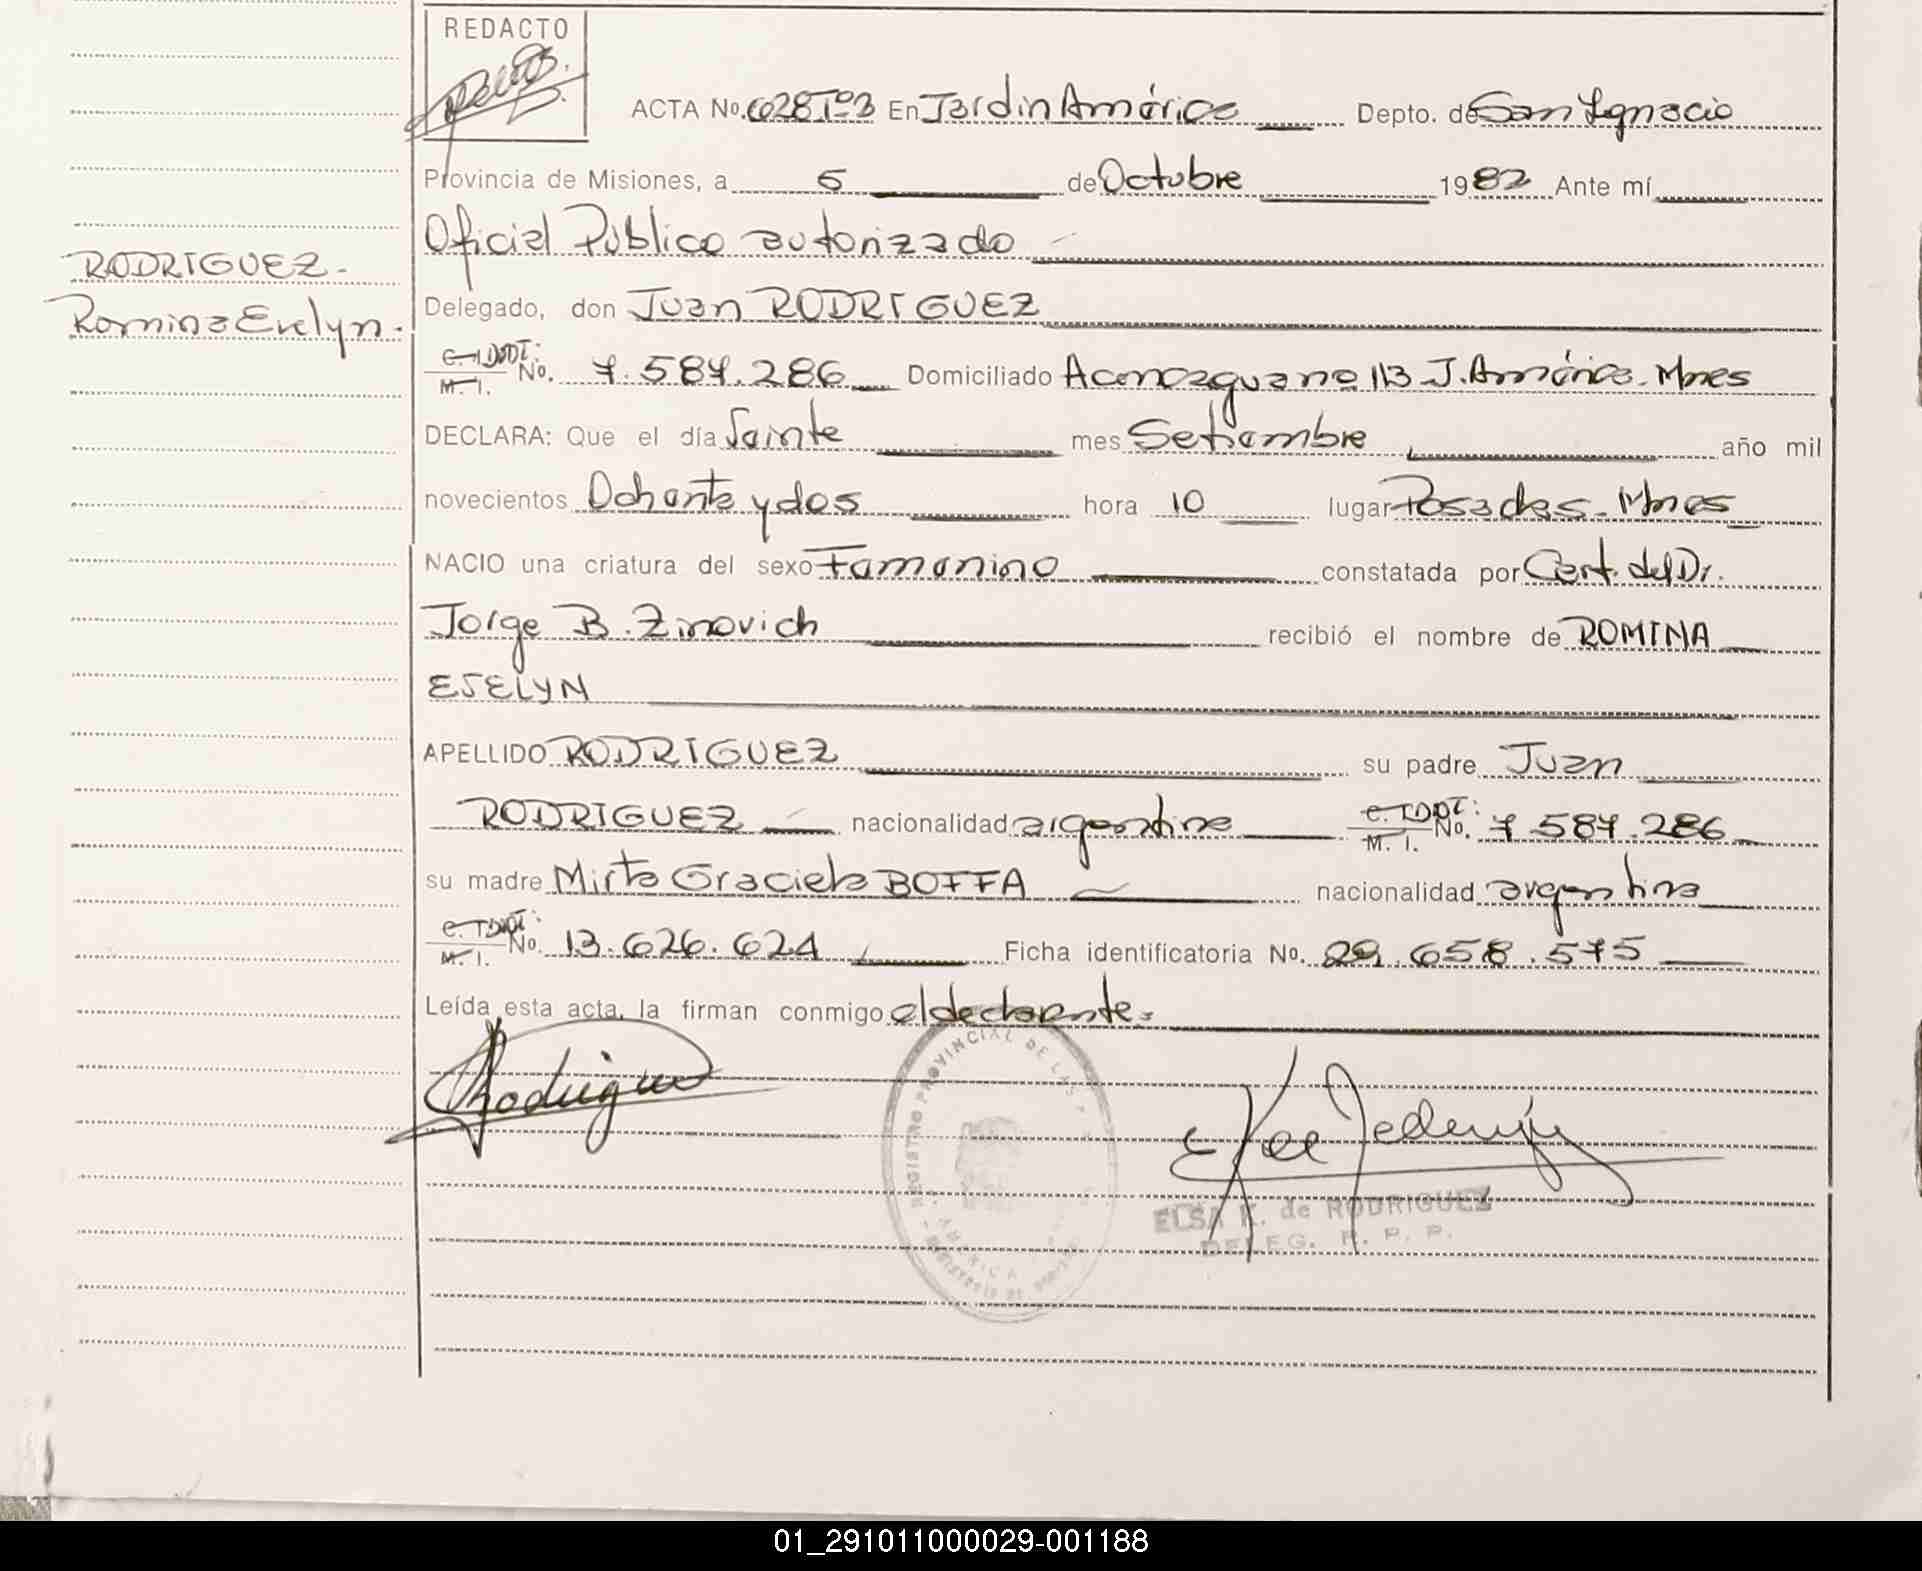 REDACTO
ACTA No. 628 Tº3 En Jardin América Depto. de San Ignacio
Provincia de Misiones, a 5 de Octubre 1982 Ante mí
Oficial Público autorizado
RODRIGUEZ.
Delegado, don Juan RODRIGUEZ
Romina Evelyn.
C. I. DDT: M. I. No. 7.587.286 Domiciliado Aconcaguano 113 J. América. Mnes
DECLARA: Que el día Veinte mes Setiembre año mil
novecientos Ochenta y dos hora 10 lugar Posadas. Mnes
NACIO una criatura del sexo Femenino constatada por Cert. del Dr.
Jorge B. Zinovich recibió el nombre de ROMINA
EVELYN
APELLIDO RODRIGUEZ su padre Juan
RODRIGUEZ nacionalidad argentina C. I. DDT: M. I. No. 7.587.286
su madre Mirta Graciela BOFFA nacionalidad argentina
C. I. DDT: M. I. No. 13.626.624 Ficha identificatoria No. 29.658.575
Leída esta acta, la firman conmigo el declarante.
Rodriguez
REGISTRO PROVINCIAL DE LAS
AMERICA
ELSA K. de RODRIGUEZ
DELEG. R. P. P.
01_291011000029-001188